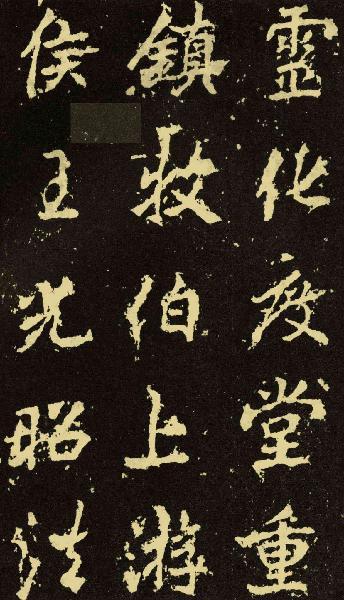 靈化度堂重
鎮牧伯上游
侯王光昭法